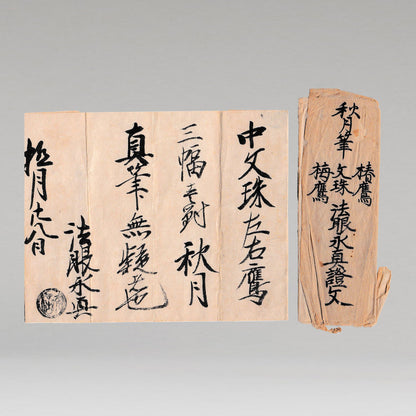 中文珠左右鷹
三幅壱対 秋月
真筆無疑者也
法眼永真
極月十八日
椿鷹
秋月筆 文珠 法眼永真證文
梅鷹